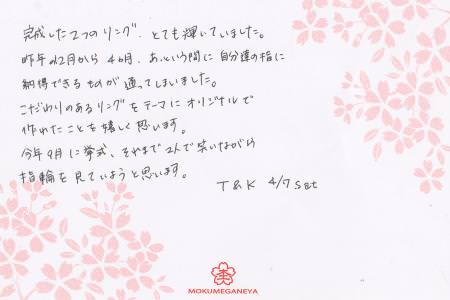 完成した2つのリング、とても輝いていました。
昨年の12月から4ヶ月、あっという間に自分達の指に
納得できるものが通ってしまいました。
こだわりのあるリングをテーマにオリジナルで
作れたことを嬉しく思います。
今年9月に挙式、それまで2人で笑いながら
指輪を見ていようと思います。
T&K 4/7 Sat
MOKUMEGANEYA